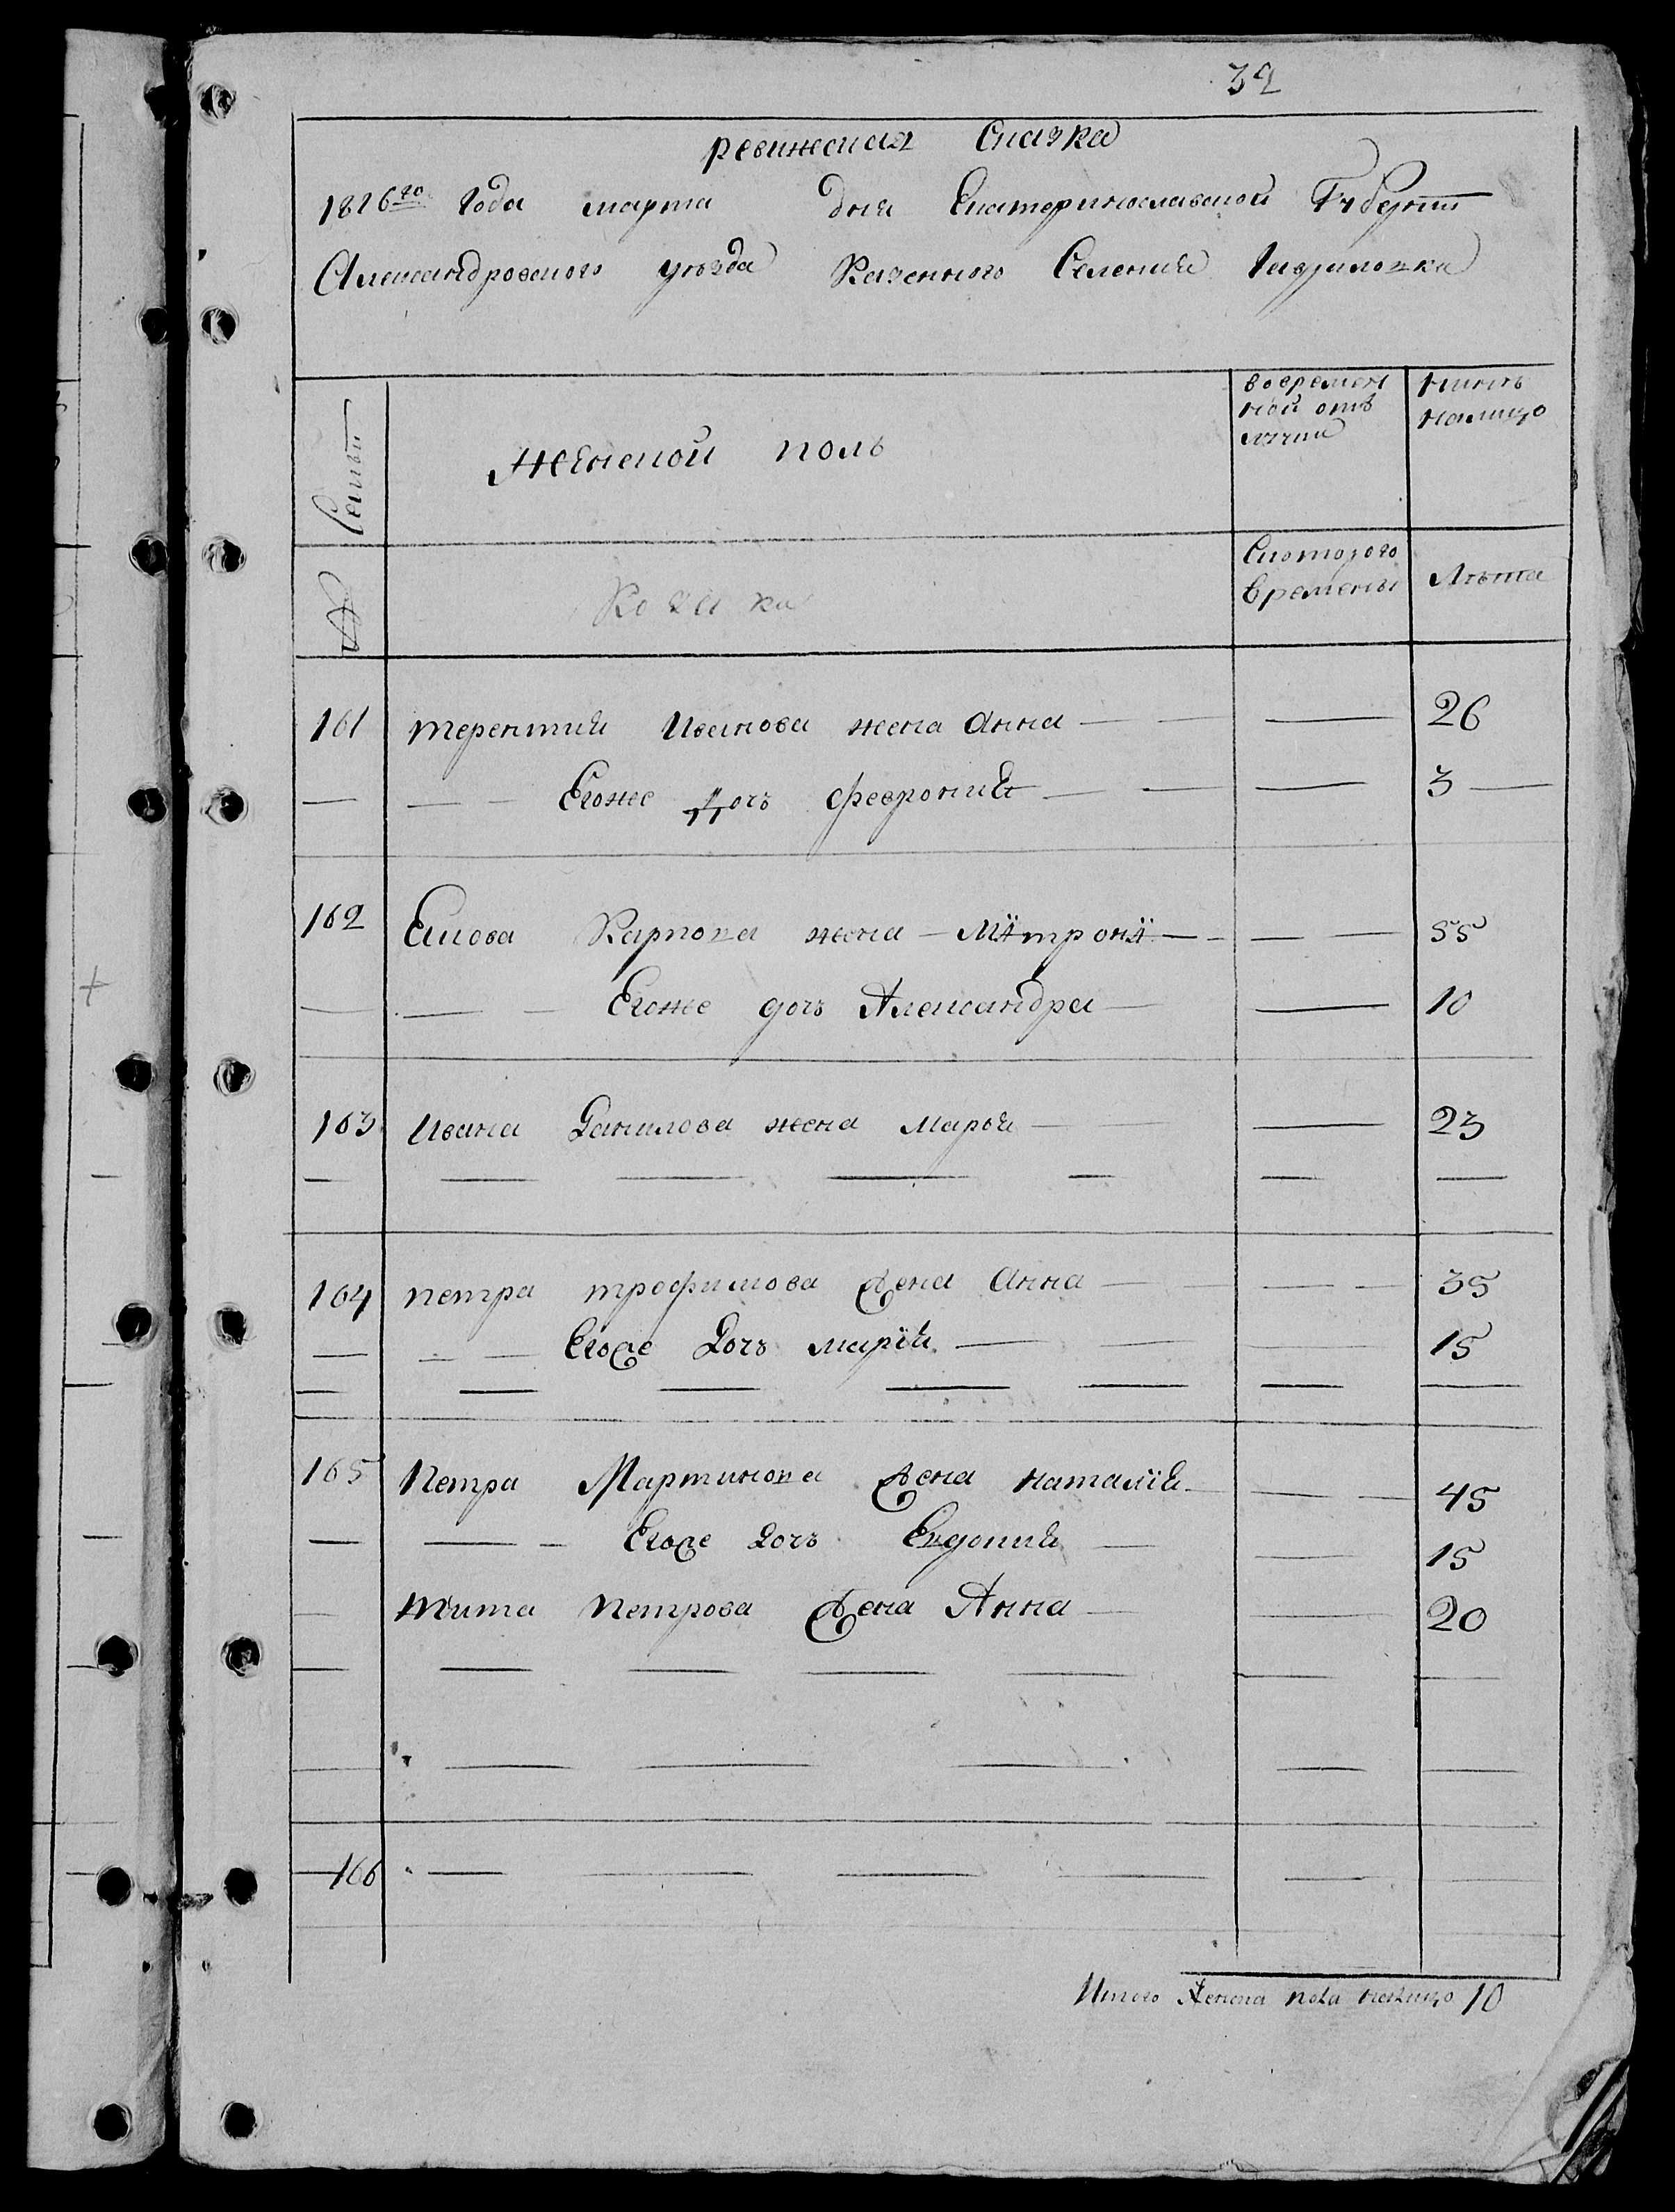 32
ревижская Сказка
1816го года марта дня Екатеринославской Губернии
Александровского уезда Казенного Селения Гавриловки
Семьи
Женской поль
вовремен
ной отъ
лучки
нинъ
налицо
№
Скоторого
Времены
Лъта
161 терентия Иванова жена Анна — — — 26
— — — Егоже Дочь феврония — — — 3 —
162 Якова Карпова жена — Мїтронї — — — 55
— — — Егоже дочь Александра — — 10
163 Ивана Данилова жена Марья — — 23
164 петра трофимова жена Анна — — — 35
— — — Егоже Дочь марїя — — — 15
165 Петра Мартинова жена наталїя — — 45
— — — Егоже Дочь Евдокия — — 15
— тита Петрова жена Анна — — 20
166 — — — — — —
Итого женска пола налицо 10